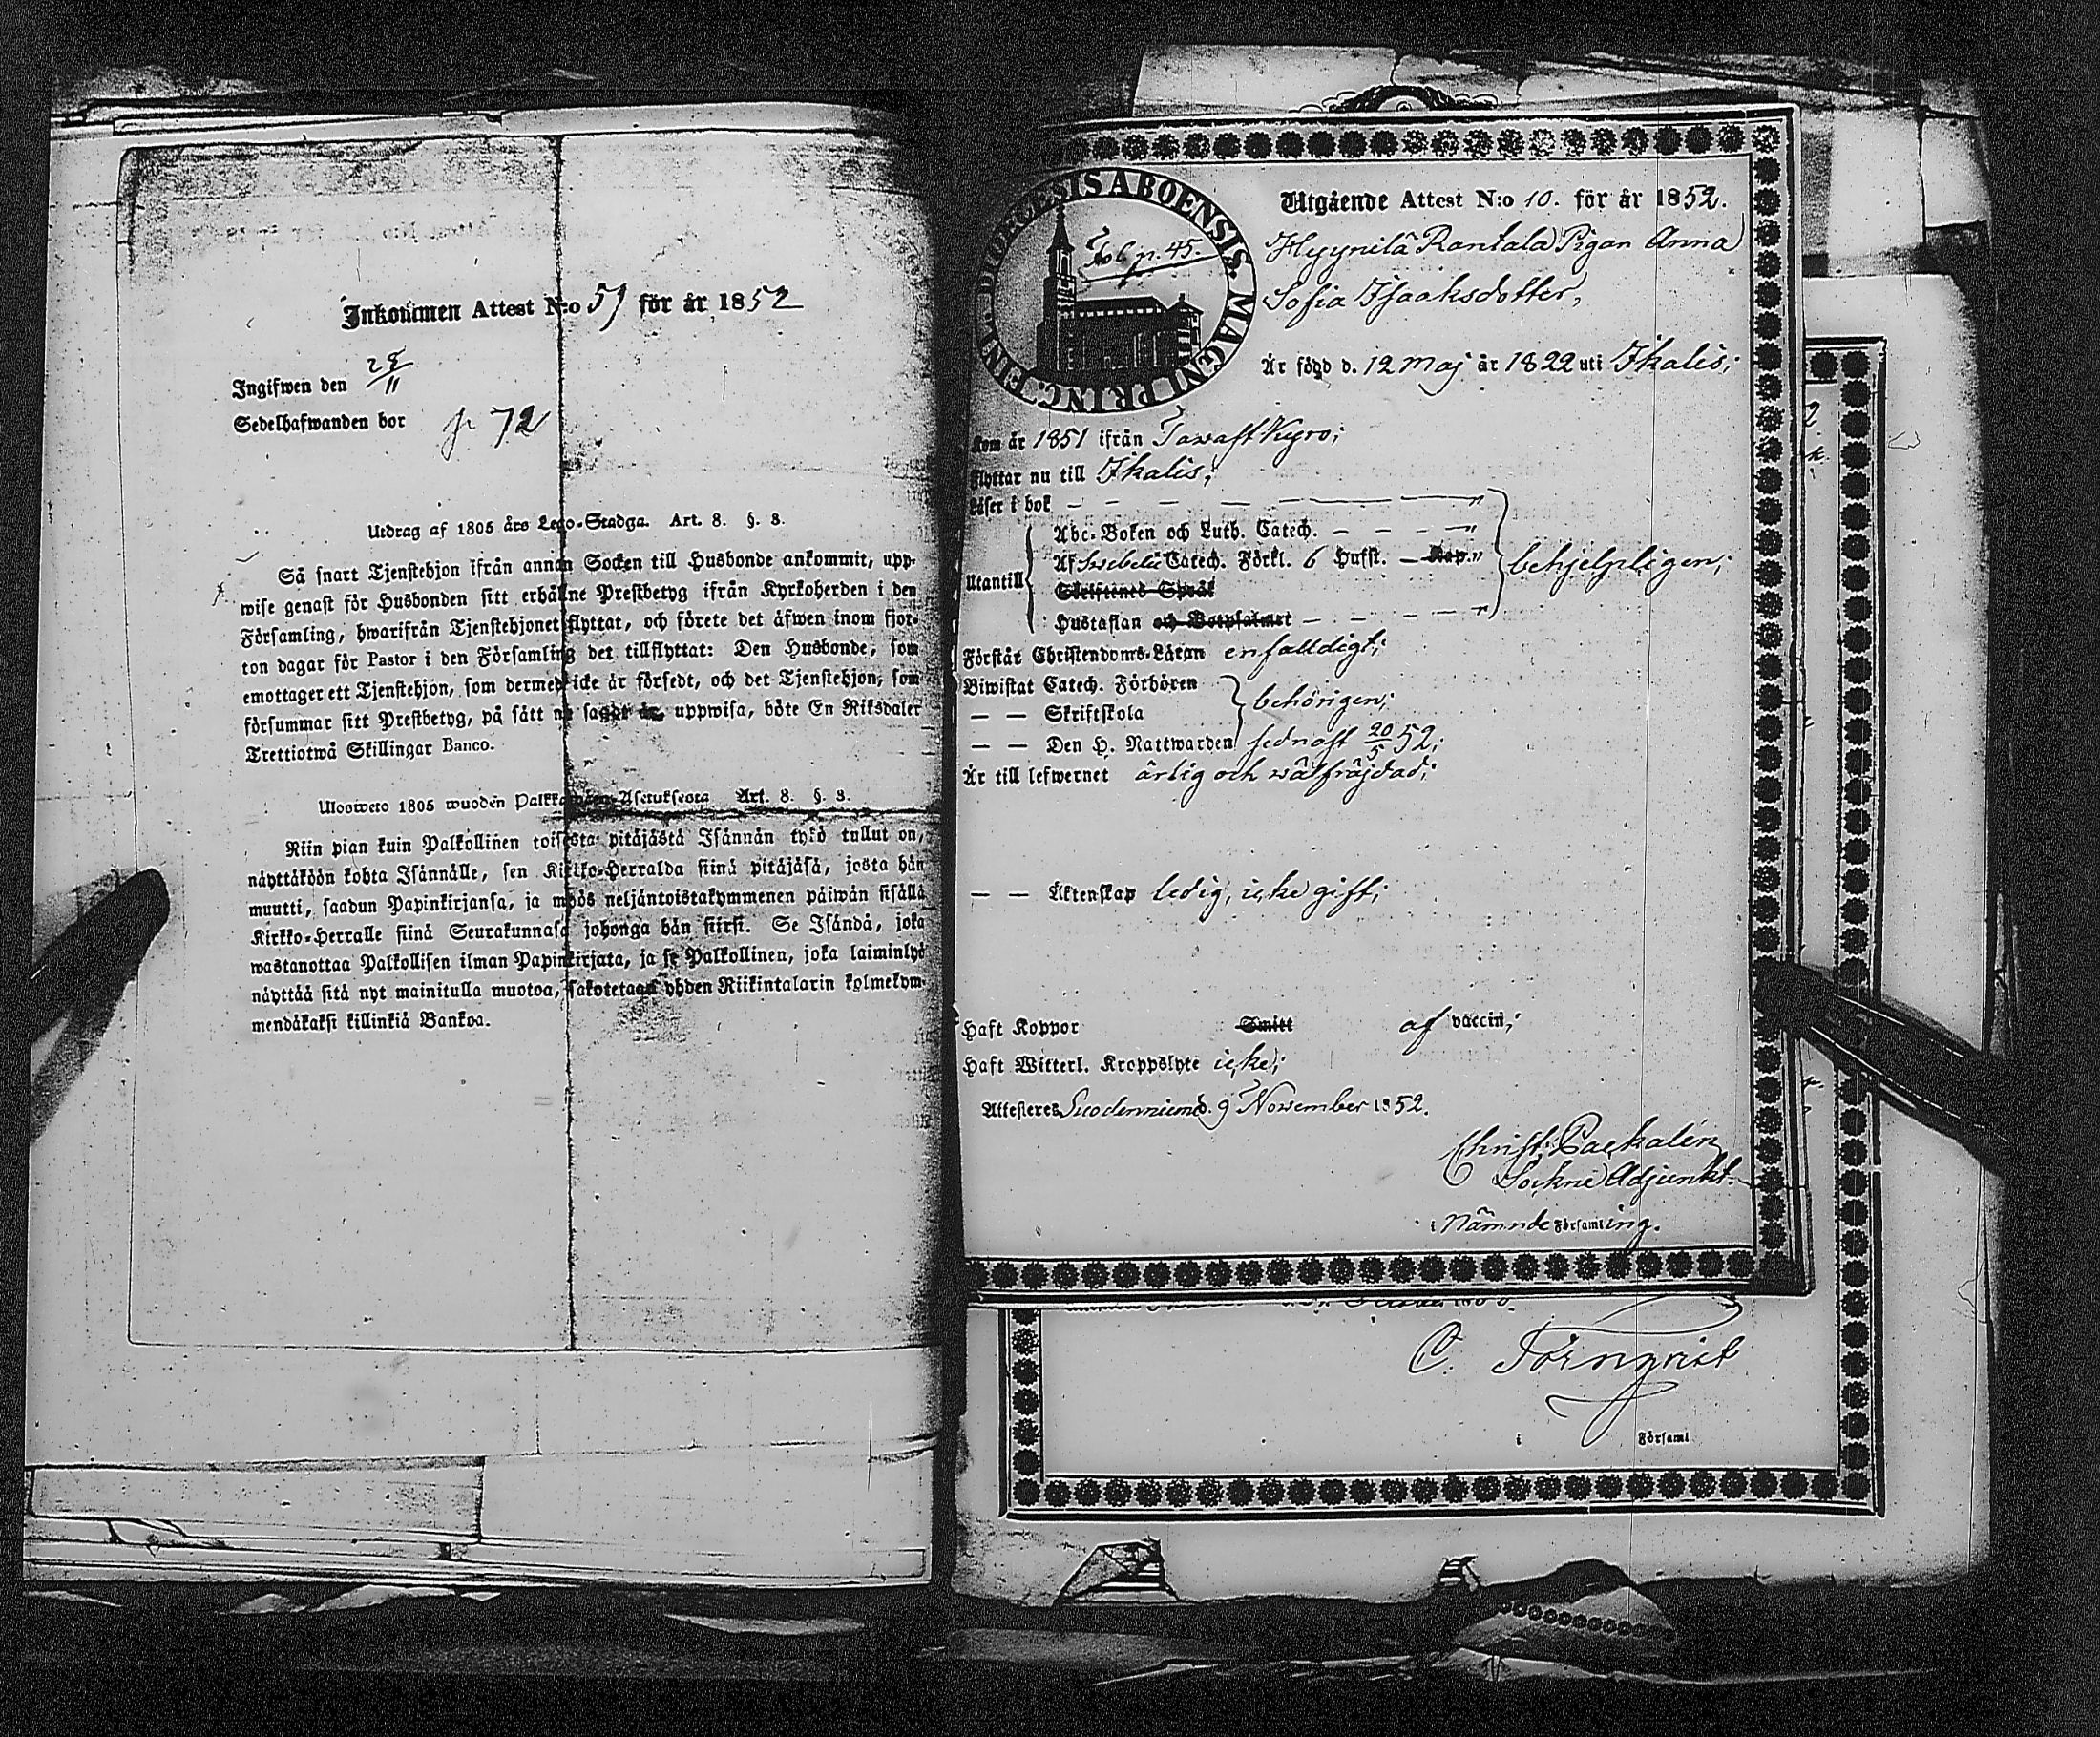 Inkommen Attest N:o 51 för år 1852
Ingifwen den 28/11
Sedelhafwanden bor p. 72
Utdrag af 1805 års Lego-Stadga. Art. 8. §. 3.
Så snart Tjenstehjon ifrån annan Socken till Husbonde ankommit, upp-
wise genast för Husbonden sitt erhållne Prestbetyg ifrån Kyrkoherden i den
Församling, hwarifrån Tjenstehjonet flyttat, och förete det äfwen inom fjor-
ton dagar för Pastor i den Församling det tillflyttat: Den Husbonde, som
emottager ett Tjenstehjon, som dermed icke är försedt, och det Tjenstehjon, som
försummar sitt Prestbetyg, på sätt nu sagdt är, uppwisa, böte En Riksdaler
Trettiotwå Skillingar Banco.
Ulosweto 1805 wuoden Asetuksesta Art. 8. §. 3.
Niin pian kuin Palkollinen toisesta pitäjästä Isännän tykö tullut on,
näyttäköön kohta Isännälle, sen Kirkko-Herralda siinä pitäjäsä, josta hän
muutti, saadun Papinkirjansa, ja myös neljäntoistakymmenen päiwän sisällä
Kirkko-Herralle siinä Seurakunnasa johonga hän siirsi. Se Isändä, joka
wastanottaa Palkollisen ilman Papinkirjata, ja se Palkollinen, joka laiminlyö
näyttää sitä nyt mainitulla muotoa, sakotetaan yhden Riikintalarin kolmekym-
mendäkaksi killinkiä Bankoa.
DIOECESIS ABOENSIS. MAGNI PRINC. FINL.
Fol. p. 45.
Utgående Attest N:o 10. för år 1852.
Hyynilä Rantala Pigan Anna
Sofia Isaaksdotter,
Är född d. 12 Maj år 1822 uti Ikalis;
Kom år 1851 ifrån Tawast Kyro;
Flyttar nu till Ikalis;
Läser i bok — — — — — "
Abc-Boken och Luth. Catech. — — — "
Af Swebelii Catech. Förkl. 6 Hufst. — Kap. " behjelpligen;
Utantill
Skriftenes Språk
Hustaflan och Botpsalmet — — — "
Förstår Christendoms-Läran enfaldigt;
Biwistat Catech. Förhören
— — Skriftskola behörigen;
— — Den H. Nattwarden sednast 20/5 52;
Är till lefwernet ärlig och wälfräjdad;
— — Äktenskap ledig, icke gift;
Haft Koppor Smitt af vaccin;
Haft Witterl. Kroppslyte icke;
Attesteres Suodenniemi d. 9 November 1852.
Christ. Packalén
Sockne Adjunkt.
i Nämnde Församling.
C. Törnqvist
i Församl